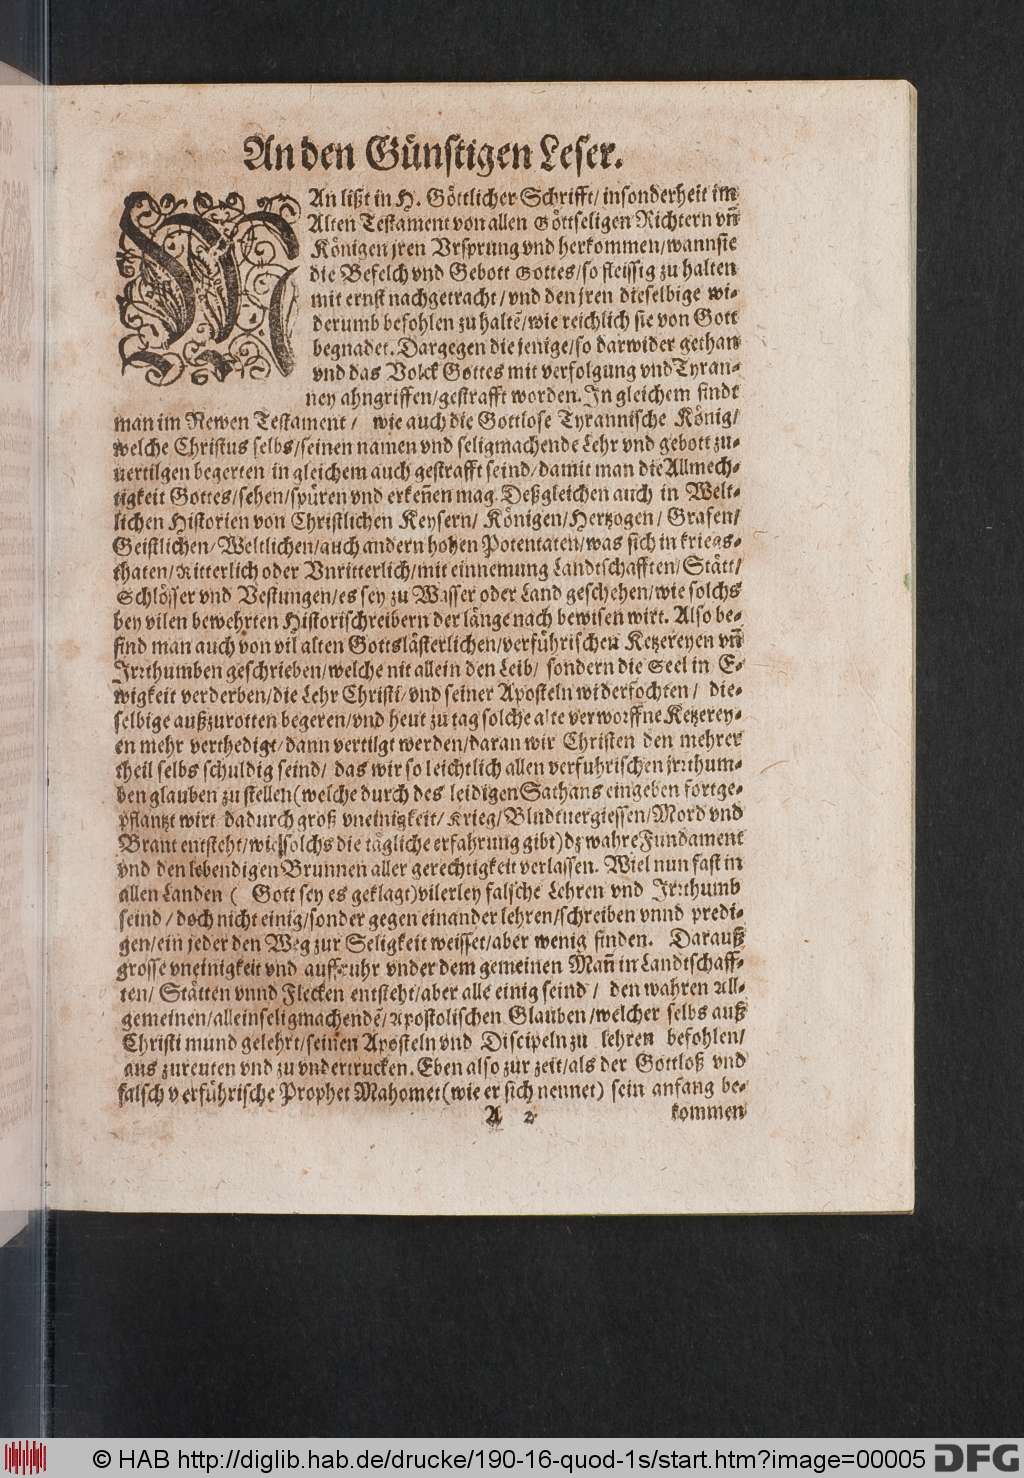 An den Günstigen Leser.
MAn lißt in H. Göttlicher Schrifft/ insonderheit im
Alten Testament von allen Göttseligen Richtern vñ
Königen jren Vrsprung vnd herkommen/wann sie
die Befelch vnd Gebott Gottes/so fleissig zu halten
mit ernst nachgetracht/vnd den jren dieselbige wi-
derumb befohlen zu haltē/wie reichlich sie von Gott
begnadet. Dargegen die jenige/so darwider gethan
vnd das Volck Gottes mit verfolgung vnd Tyran-
ney ahngriffen/gestrafft worden. In gleichem findt
man im Newen Testament/ wie auch die Gottlose Tyrannische König/
welche Christus selbs/seinen namen vnd seligmachende Lehr vnd gebott zu-
uertilgen begerten in gleichem auch gestrafft seind/damit man die Allmech-
tigkeit Gottes/sehen/spüren vnd erkeñen mag. Deßgleichen auch in Welt-
lichen Historien von Christlichen Keysern/ Königen/Hertzogen/ Grafen/
Geistlichen/Weltlichen/auch andern hohen Potentaten/was sich in kriegs-
thaten/Ritterlich oder Vnritterlich/mit einnemung Landtschafften/Stätt/
Schlösser vnd Vestungen/es sey zu Wasser oder Land geschehen/wie solchs
bey vilen bewehrten Historischreibern der länge nach bewisen wirt. Also be-
find man auch von vil alten Gottslästerlichen/verführischen Ketzereyen vñ
Irrthumben geschrieben/welche nit allein den Leib/ sondern die Seel in E-
wigkeit verderben/die Lehr Christi/vnd seiner Aposteln widerfochten/ die-
selbige außzurotten begeren/vnd heut zu tag solche alte verworffne Ketzerey-
en mehr verthedigt/dann vertilgt werden/daran wir Christen den mehrer
theil selbs schuldig seind/ das wir so leichtlich allen verfuhrischen jrrthum-
ben glauben zu stellen(welche durch des leidigen Sathans eingeben fortge-
pflantzt wirt dadurch groß vneinigkeit/Krieg/Bludtuergiessen/Mord vnd
Brant entsteht/wie solchs die tägliche erfahrung gibt)dz wahre Fundament
vnd den lebendigen Brunnen aller gerechtigkeit verlassen. Wiel nun fast in
allen Landen ( Gott sey es geklagt)vilerley falsche Lehren vnd Irrthumb
seind/doch nicht einig/sonder gegen einander lehren/schreiben vnnd predi-
gen/ein jeder den Weg zur Seligkeit weisset/aber wenig finden. Darauß
grosse vneinigkeit vnd auffruhr vnder dem gemeinen Mañ in Landtschaff-
ten/ Stätten vnnd Flecken entsteht/aber alle einig seind/ den wahren All-
gemeinen/alleinseligmachendē/Apostolischen Glauben/welcher selbs auß
Christi mund gelehrt/seinen Aposteln vnd Discipeln zu lehren befohlen/
aus zureuten vnd zu vndertrucken. Eben also zur zeit/als der Gottloß vnd
falsch verführische Prophet Mahomet(wie er sich nennet) sein anfang be-
A 2 kommen
© HAB http://diglib.hab.de/drucke/190-16-quod-1s/start.htm?image=00005 DFG